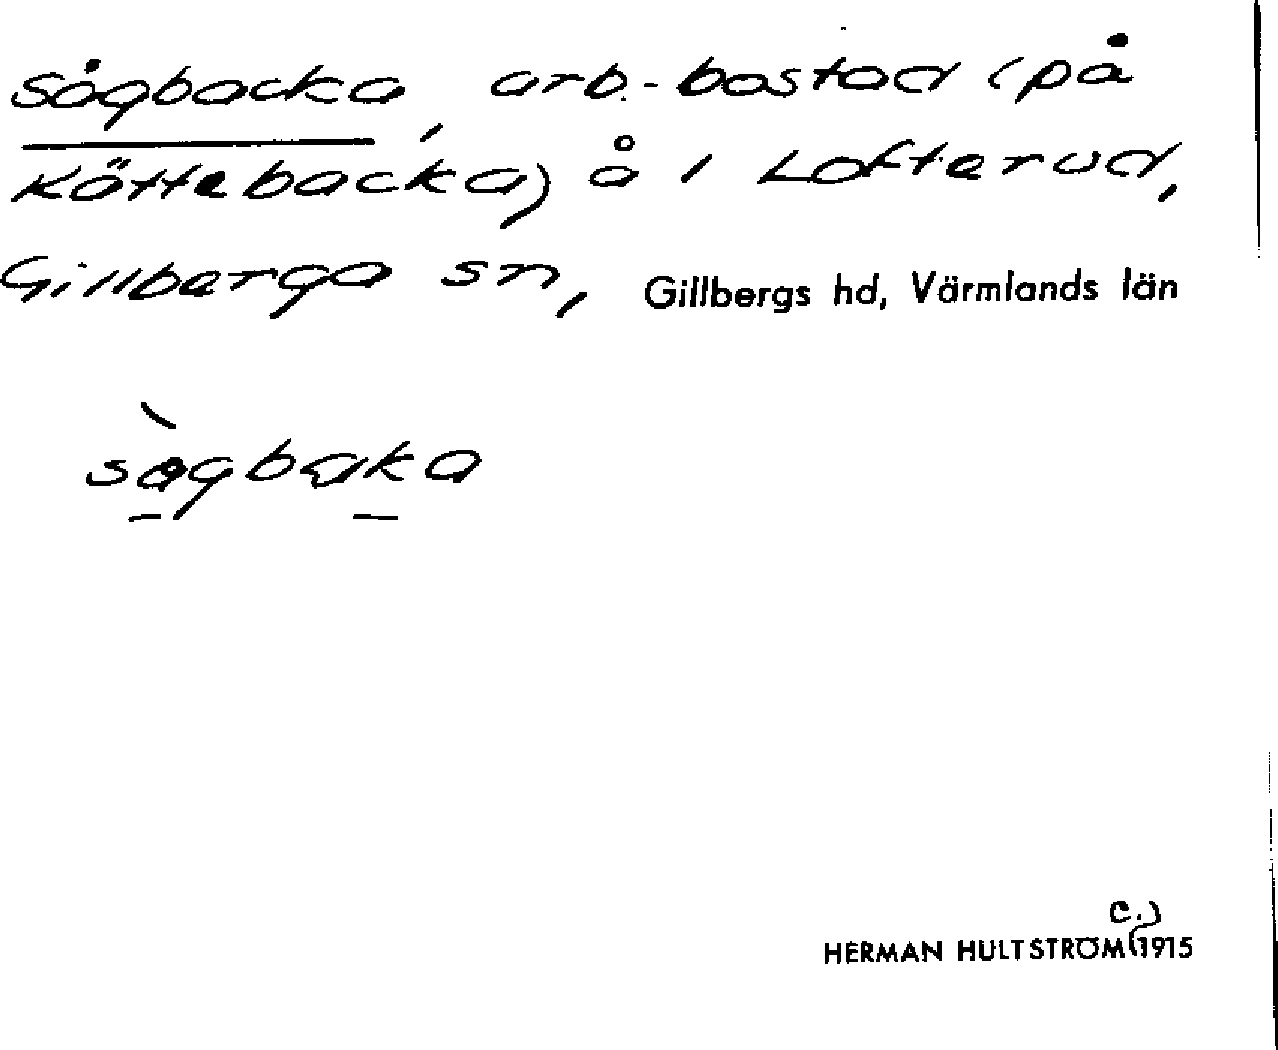 Sågbacka, arb.-bostad (på
Köttebacka) å 1 Lofterud,
Gillberga sn, Gillbergs hd, Värmlands län
sàgbaka
c.)
HERMAN HULTSTRÖM 1915